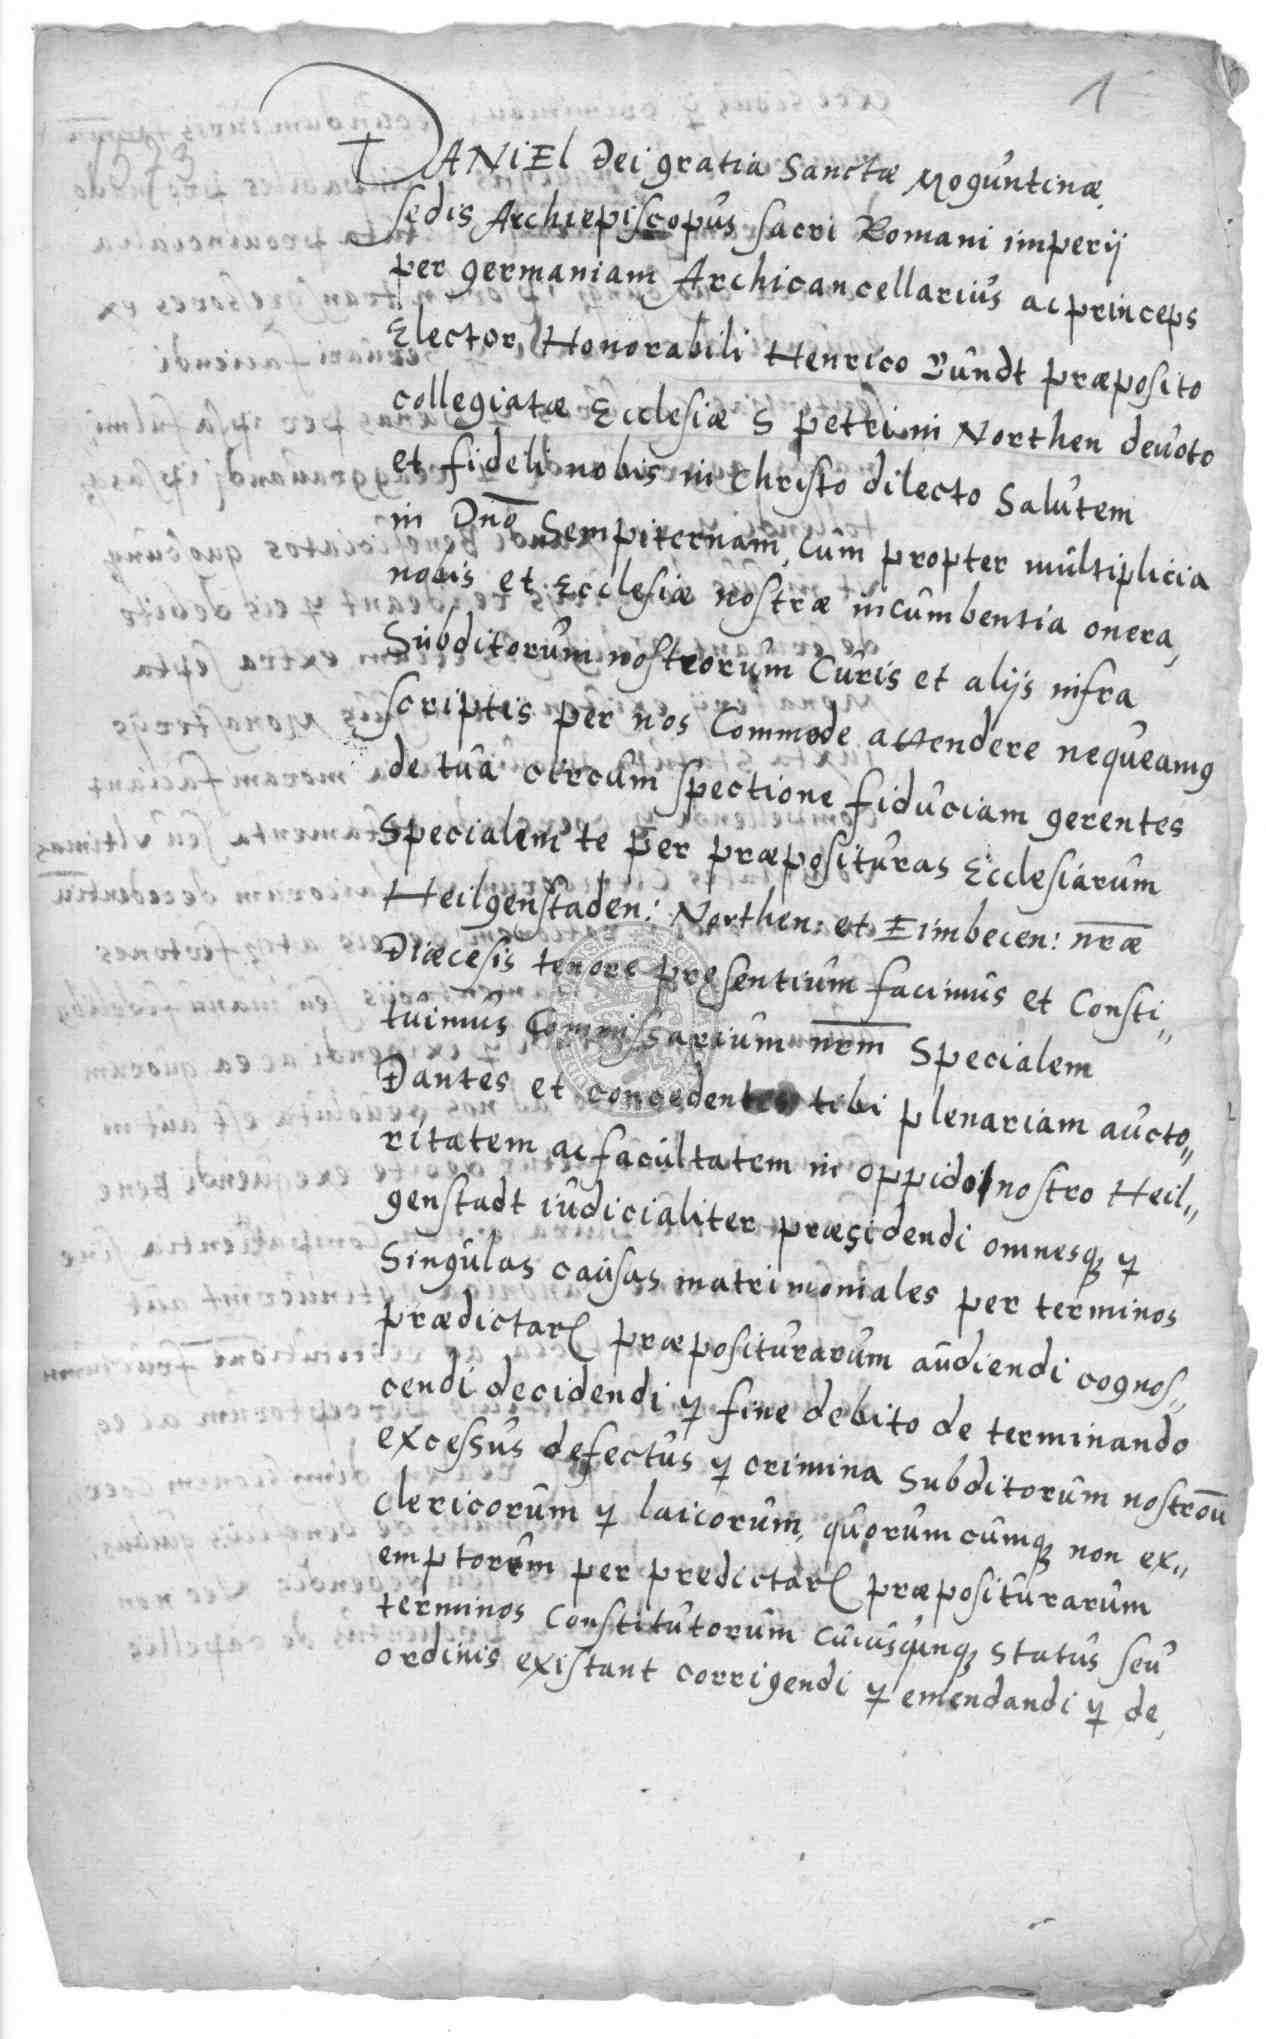 1
1573
DANiEl Dei gratia Sanctæ Moguntinæ
sedis Archiepiscopus sacri Romani imperij
per germaniam Archicancellarius ac princeps
Elector, Honorabili Henrico Bundt præposito
collegiatæ Ecclesiæ S petri in Northen devoto
et fideli nobis in Christo dilecto Salutem
in Dno Sempiternam, Cum propter multiplicia
nobis et Ecclesiæ nostræ incumbentia onera,
Subditorum nostrorum Curis et alijs infra
scriptis per nos Commode attendere nequeamus
de tua circum spectione fiduciam gerentes
Specialem te per præposituras Ecclesiarum
Heilgenstaden: Northen: et Eimbecen: nræ
Diæcesis tenore presentium facimus et Consti„
tuimus Commissarium nrm Specialem
Dantes et concedentes tibi plenariam aucto„
ritatem ac facultatem in oppido nostro Heil„
genstadt iudicialiter præsidendi omnesq; et
Singulas causas matrimoniales per terminos
prædictar præpositurarum audiendi cognos„
cendi decidendi et fine debito de terminando
excessus defectus et crimina Subditorum nostrou
clericorum et laicorum, quorumcumq; non ex„
emptorum per predictar præpositurarum
terminos Constitutorum cuiusqunq; status seu
ordinis existant corrigendi et emendandi et de,